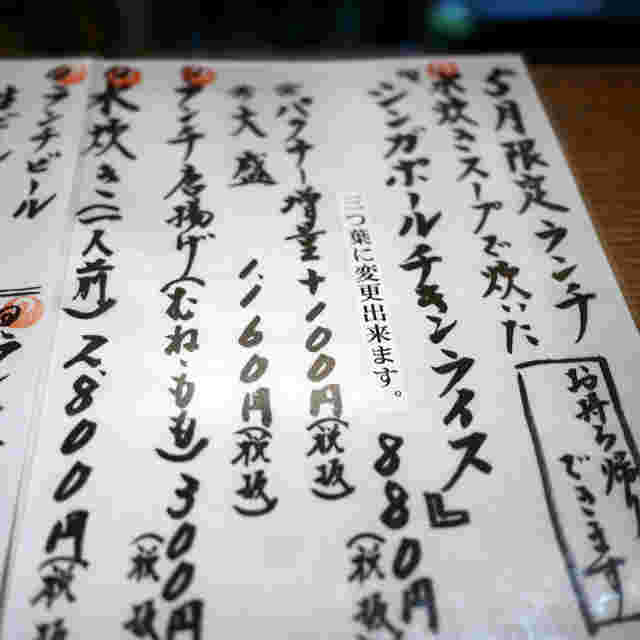 5月限定ランチ
お持ち帰り
できます
水炊きスープで炊いた
『シンガポールチキンライス』
880円(税抜
三つ葉に変更出来ます。
※パクチー増量+100円(税抜)
※大盛 1,160円(税抜)
ランチ唐揚げ(むね・もも)300円
(税抜
水炊き(二人前)2,800円(税抜
ランチビール